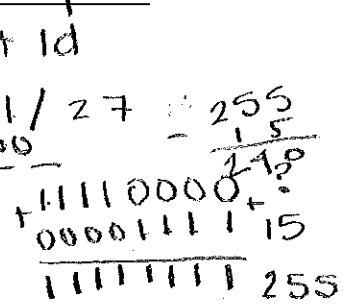 t Id
1/27 255
00 15
240
+11110000+?
00001111 15
11111111 255